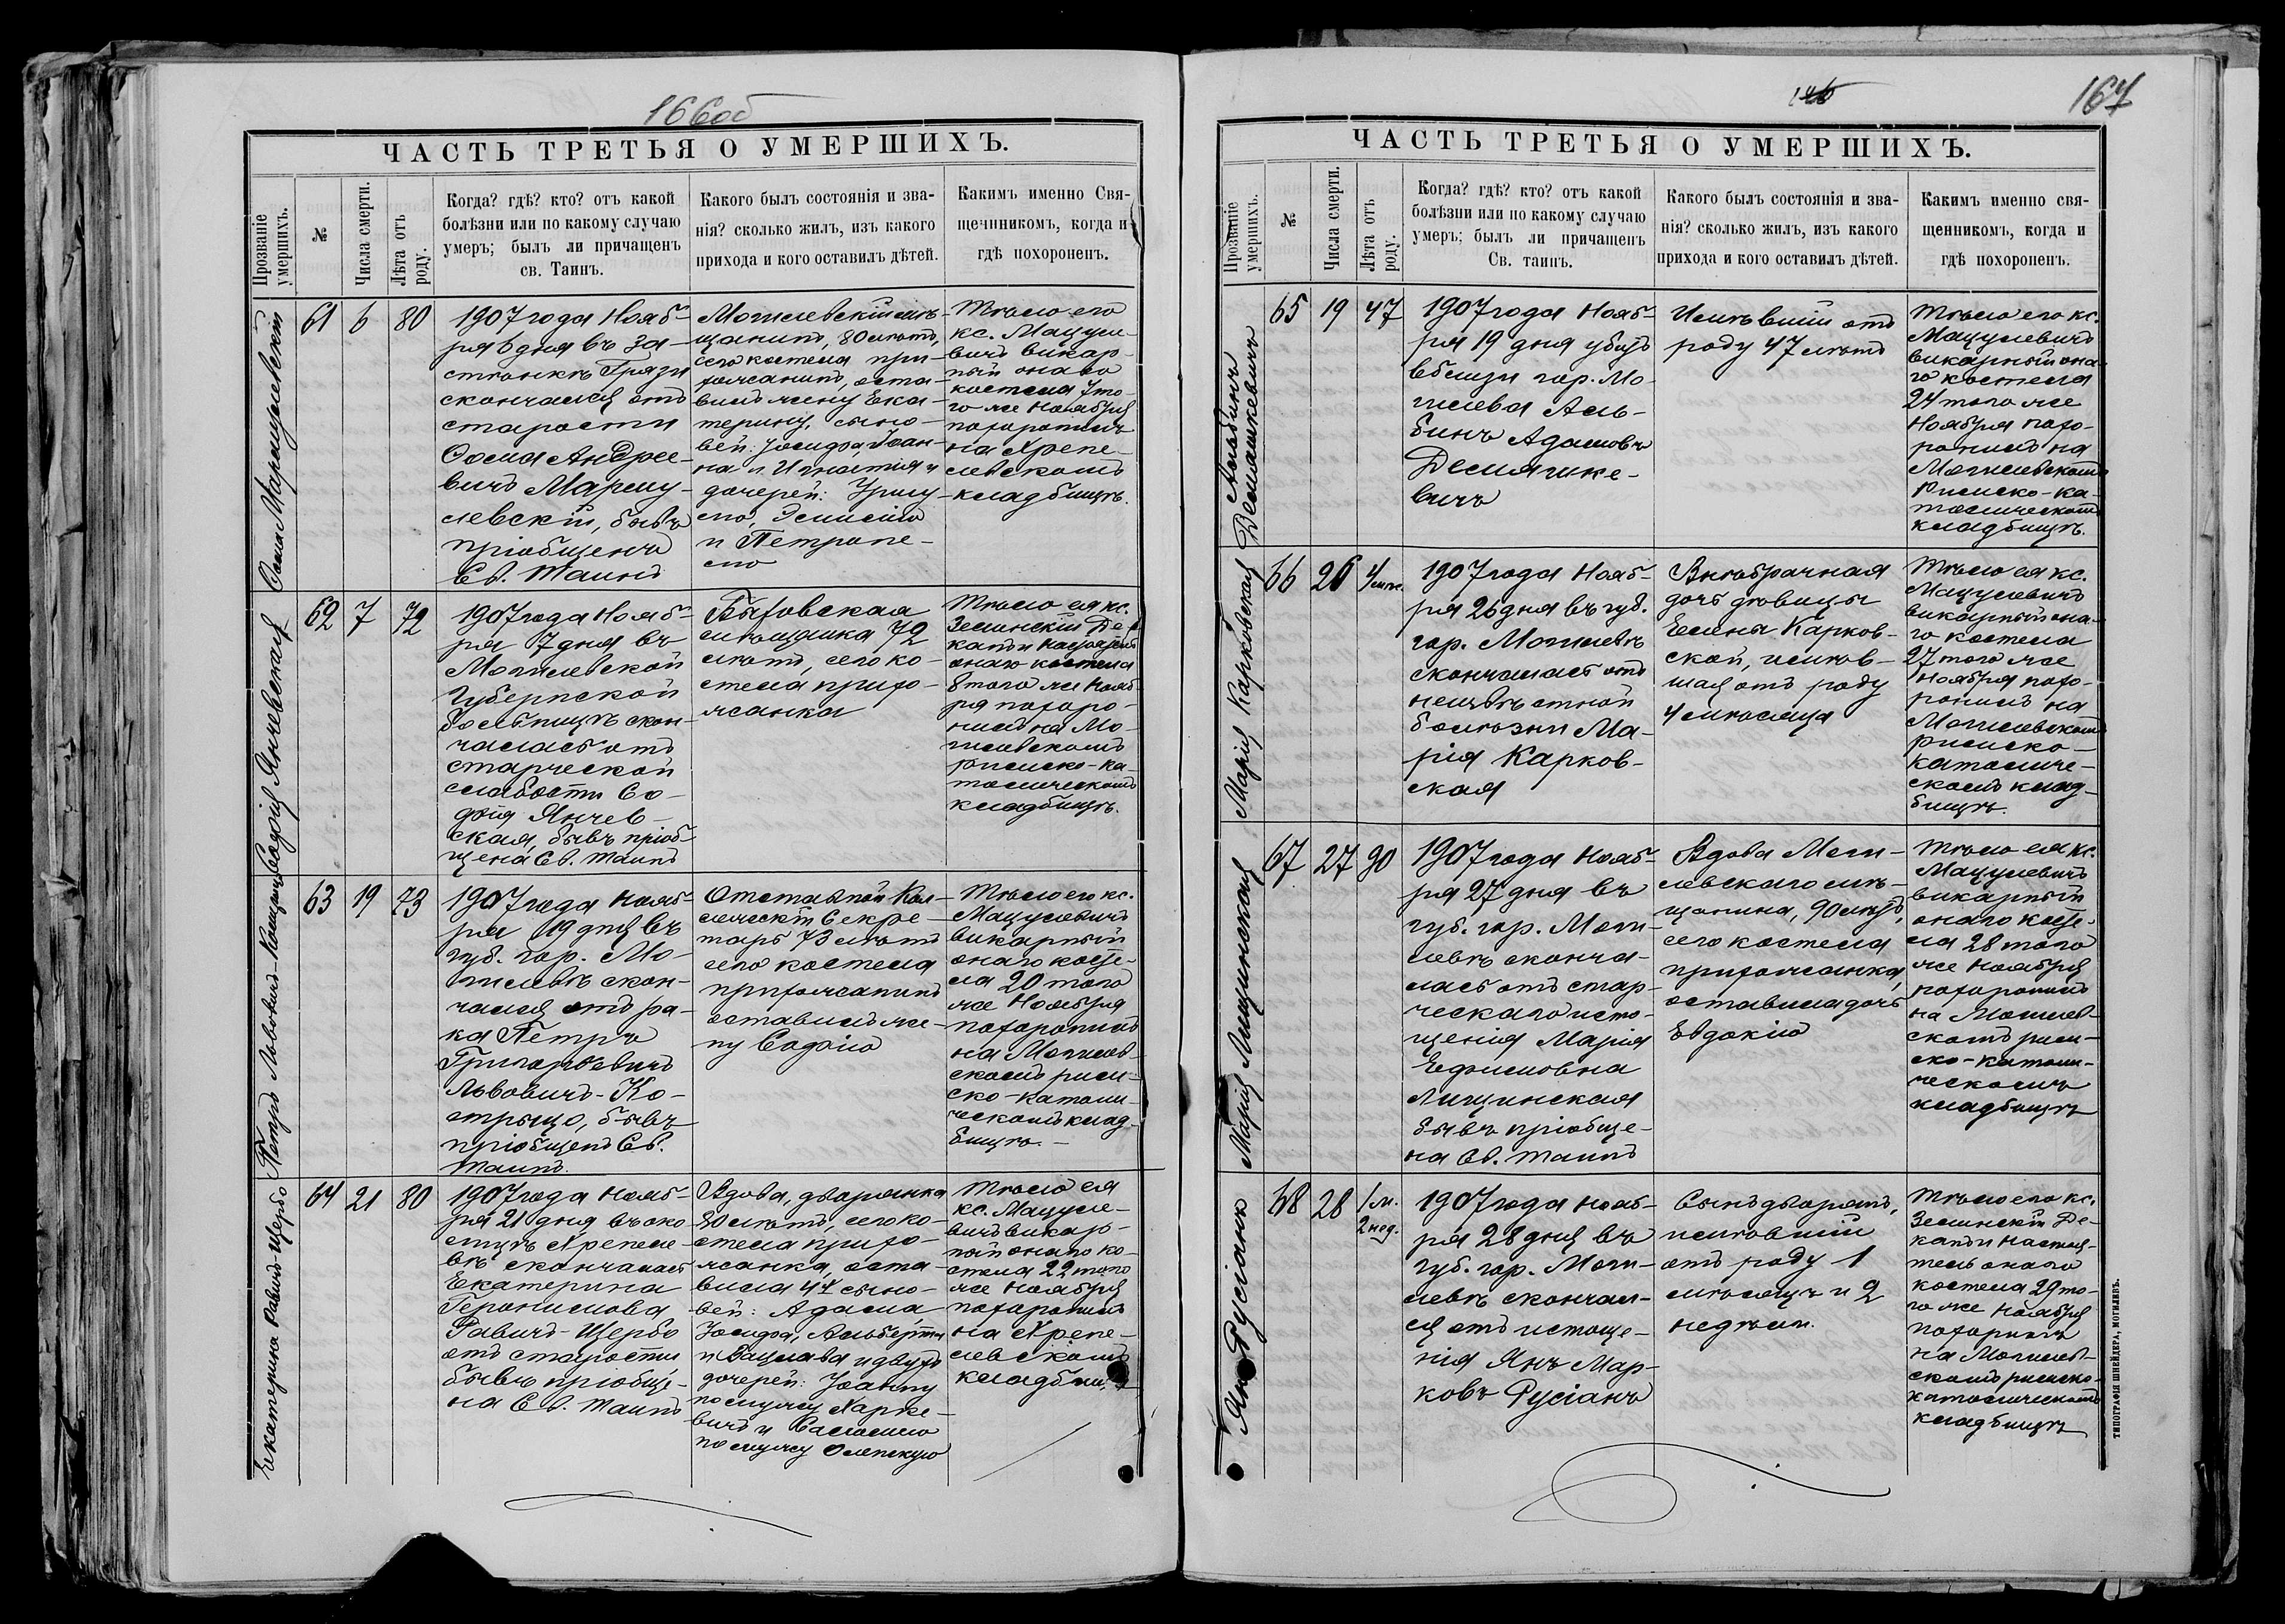 166об
ЧАСТЬ ТРЕТЬЯ О УМЕРШИХЪ.
Прозваніе
умершихъ.
№
Числа смерти.
Лѣта отъ
роду.
Когда? гдѣ? кто? отъ какой
болѣзни или по какому случаю
умеръ; былъ ли причащенъ
св. Таинъ.
Какого былъ состоянія и зва-
нія? сколько жилъ, изъ какого
прихода и кого оставилъ дѣтей.
Какимъ именно Свя-
щенникомъ, когда и
гдѣ похороненъ.
Ѳома Марцулевскій
61
6
80
1907 года Нояб-
ря 6 дня въ за-
стѣнкѣ Грязи
скончался отъ
старости
Ѳома Андрее-
вичъ Марцу-
левскій, бывъ
пріобщенъ
Св. Таинъ
Могилевскій мѣ-
щанинъ, 80 лѣтъ,
сего костела при-
хожанинъ, оста-
вилъ жену Ека-
терину, сыно-
вей: Іосифа, Іоан-
на и Игнатія и
дочерей: Уршу-
лю, Эмилію
и Петропе-
лю
Тѣло его
кс. Мацуле-
вичъ викар-
ный онаго
костела 7 то-
го же Ноября
похоронилъ
на Хрепе-
левскомъ
кладбищѣ.
Софія Янчевская
62
7
72
1907 года Нояб-
ря 7 дня въ
Могилевской
Губернской
больницѣ скон-
чалась отъ
старческой
слабости Со-
фія Янчев-
ская, бывъ пріоб-
щена Св. Таинъ
Быховская
мѣщанка 72
лѣтъ, сего ко-
стела прихо-
жанка
Тѣло ея кс.
Зелинскій Де-
канъ и Настоятель
онаго костела
8 того же Нояб-
ря похоро-
нилъ на Мо-
гилевскомъ
римско-ка-
толическомъ
кладбищѣ.
Петръ Львовичъ-Кострыцо
63
19
73
1907 года Нояб-
ря 19 дня въ
губ. гор. Мо-
гилевѣ скон-
чался отъ ра-
ка Петръ
Григорьевичъ
Львовичъ-Ко-
стрыцо, бывъ
пріобщенъ Св.
Таинъ.
Отставной Кол-
лежскій Секре-
тарь 73 лѣтъ
сего костела
прихожанинъ
оставилъ же-
ну Софію
Тѣло его кс.
Мацулевичъ
викарный
онаго косте-
ла 20 того
же Ноября
похоронилъ
на Могилев-
скомъ рим-
ско-католи-
ческомъ клад-
бищѣ.-
Екатерина Равичъ-Щербо
64
21
80
1907 года Нояб-
ря 21 дня въ око-
лицѣ Хрепеле-
вѣ скончалась
Екатерина
Геронимова
Равичъ-Щербо
отъ старости
бывъ пріобще-
на Св. Таинъ
Вдова, дворянка
80 лѣтъ, сего ко-
стела прихо-
жанка, оста-
вила 4 сыно-
вей: Адама,
Іосифа, Альберта
и Вацлава и двухъ
дочерей: Іоанну
по мужу Харке-
вичъ и Саломею
по мужу Оленскую
Тѣло ея
кс. Мацуле-
вичъ викар-
ный онаго ко-
стела 22 того
же Ноября
похоронилъ
на Хрепе-
левскомъ
кладбищѣ
167
ЧАСТЬ ТРЕТЬЯ О УМЕРШИХЪ.
Прозваніе
умершихъ.
№
Числа смерти.
Лѣта отъ
роду.
Когда? гдѣ? кто? отъ какой
болѣзни или по какому случаю
умеръ; былъ ли причащенъ
Св. таинъ.
Какого былъ состоянія и зва-
нія? сколько жилъ, изъ какого
прихода и кого оставилъ дѣтей.
Какимъ именно свя-
щенникомъ, когда и
гдѣ похороненъ.
Альбинъ
Демяшкевичъ
65
19
47
1907 года Нояб-
ря 19 дня убитъ
вблизи гор. Мо-
гилева Аль-
бинъ Адамовъ
Демяшке-
вичъ
Имѣвшій отъ
роду 47 лѣтъ
Тѣло его кс.
Мацулевичъ
викарный она-
го костела
24 того же
Ноября похо-
ронилъ на
Могилевскомъ
Римско-ка-
толическомъ
кладбищѣ.
Марія Карковская
66
26
4 мѣс.
1907 года Нояб-
ря 26 дня въ губ.
гор. Могилевѣ
скончалась отъ
неизвѣстной
болѣзни Ма-
рія Карков-
ская
Внѣбрачная
дочь дѣвицы
Елены Карков-
ской, имѣв-
шая отъ роду
4 мѣсяца
Тѣло ея кс.
Мацулевичъ
викарный она-
го костела
27 того же
Ноября похо-
ронилъ на
Могилевскомъ
римско-
католиче-
скомъ клад-
бищѣ.
Марія Лищинская
67
27
90
1907 года Нояб-
ря 27 дня въ
губ. гор. Моги-
левѣ сконча-
лась отъ стар-
ческаго исто-
щенія Марія
Ефимовна
Лищинская
бывъ пріобще-
на Св. Таинъ
Вдова Моги-
левскаго мѣ-
щанина, 90 лѣтъ,
сего костела
прихожанка,
оставила дочь
Евдокію
Тѣло ея кс.
Мацулевичъ
викарный
онаго косте-
ла 28 того
же Ноября
похоронилъ
на Могилев-
скомъ рим-
ско-католи-
ческомъ
кладбищѣ
Янъ Русіанъ
68
28
1 м.
2 нед.
1907 года Нояб-
ря 28 дня въ
губ. гор. Моги-
левѣ скончал-
ся отъ истоще-
нія Янъ Мар-
ковъ Русіанъ
Сынъ дворянъ,
имѣвшій
отъ роду 1
мѣсяцъ и 2
недѣли.
Тѣло его кс.
Зелинскій Де-
канъ и Настоя-
тель онаго
костела 29 то-
го же Ноября
похоронилъ
на Могилев-
скомъ римско-
католическомъ
кладбищѣ
ТИПОГРАФІЯ ШНЕЙДЕРА, МОГИЛЕВЪ.